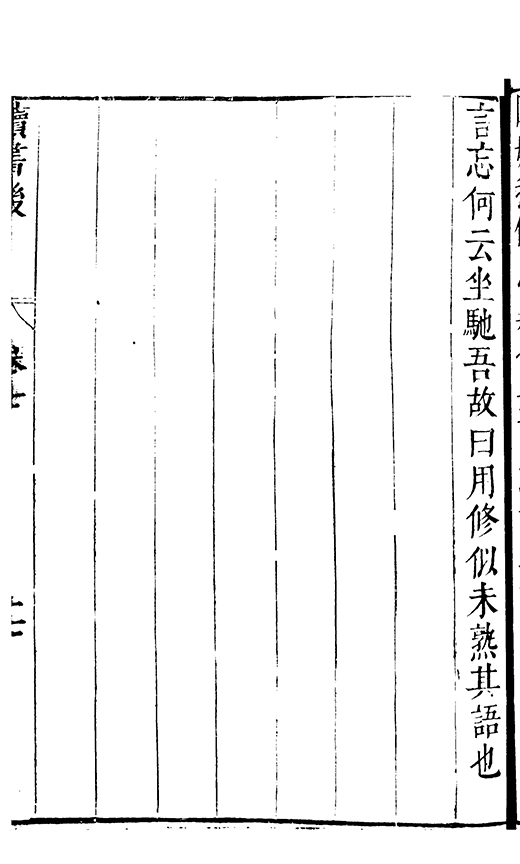 言忘何云坐馳吾故曰用修似未熟其語也
讀書後
卷七